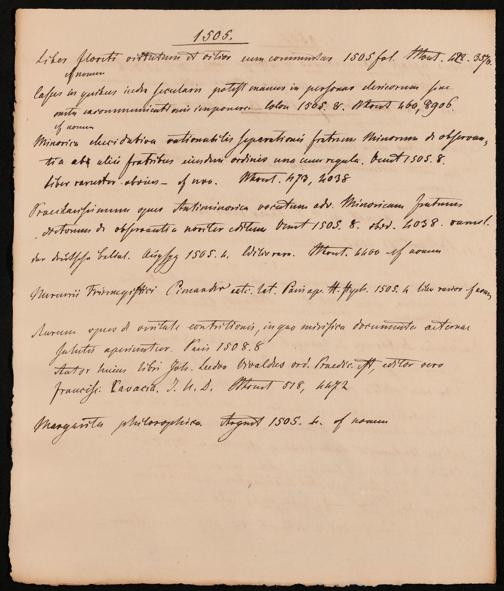 1505.
Liber floriti virtutum et vitior cum commentis 1505 fol. Mont. 422.
cf nomen
Casus in quibus iudex secularis potest manus in personas clericorum sine
metu excommunicationis imponere Colon 1505. 8. Mont 460, 8906.
cf nomen
Minorica elucidativa rationabilis separationis fratrum Minorum de observan,
tia ab aliis fratribus eiusdem ordinis una cum regula. Venet 1505. 8.
liber rarus Mont. 473, 4038
Praeclarissimum opus Antiminorica vocatum adv. Minoricam fratrum
de observantia noviter editum Venet 1505. 8. 4038.
der deutsche 1505. 4. Mont. 4460 cf nomen
Mercurii Trismegistici Pimander etc. lat. Paris ap. H. Steph. 1505. 4 liber rarior cf nomen
Aureum opus de veritate contritionis, in quo mirifica documenta aeternae
salutis aperiuntur. Paris 1508. 8
Autor huius libri Joh. Ludov Vivaldus ord. Praedic. editor vero
Francisc. Cavacia. J. U. D. Mont 518, 4472
Margarita philosophica Argent 1505. 4. cf nomen